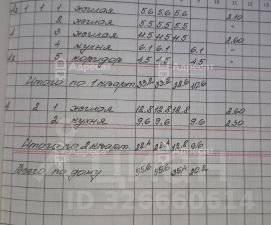 1 1 1 жилая 5.6 5.6 5.6 2.10
2 жилая 5.5 5.5 5.5 "
3 жилая 11.5 11.5 11.5 2.60
4 кухня 6.1 6.1 6.1 "
5 коридор 4.5 4.5 4.5 "
Итого по 1 кварт.
1 2 1 жилая 12.8 12.8 12.8 2.60
2 кухня 9.6 9.6 9.6 2.30
Итого по 2 кварт. 22.4 22.4 12.8 9.6
Всего по дому 55.6 55.6 35.4 20.2
ID 326660614